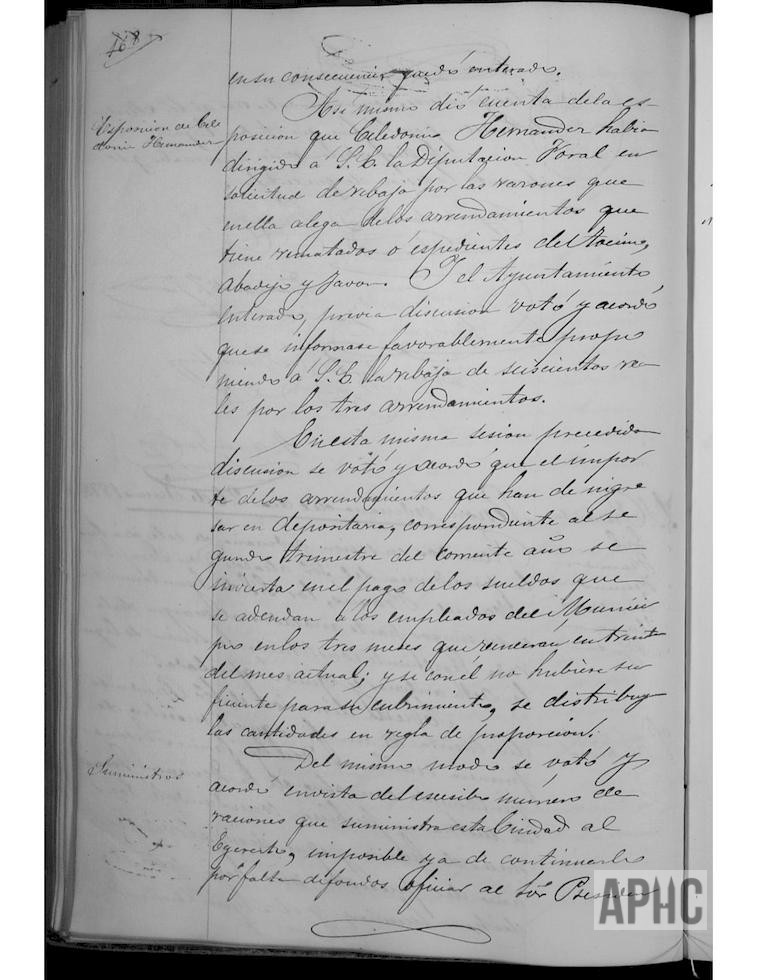 168
en su consecuencia quedó enterado.
Asi mismo dio cuenta de la es-
Esposicion de Cele
donio Hernander
posicion que Celedonio Hernander habia
dirigido á S. E. la Diputacion Foral en
solicitud de rebaja por las razones que
en ella alega de los arrendamientos que
tiene rematados o espedientes del tocino,
abadejo y javon. I el Ayuntamiento
enterado, previa discusion votó y acordó
que se informase favorablemente propo
niendo á S. E. la rebaja de seiscientos rea
les por los tres arrendamientos.
En esta misma sesion precedida
discusion se votó y acordó que el impor
te de los arrendamientos que han de ingre
sar en depositaria, correspondiente al se
gundo trimestre del corriente año se
invierta en el pago de los sueldos que
se adeudan a los empleados del Munici
pio en los tres meses que venceran en treinta
del mes actual; y si con él no hubiere su
ficiente para su cubrimiento, se distribuya
las cantidades en regla de proporcion.
Suministros
Del mismo modo se votó y
acordó en vista del escesibo número de
raciones que suministra esta Ciudad al
Egercito, imposible ya de continuarlo
por falta de fondos oficiar al Sor. Presiden
APHC